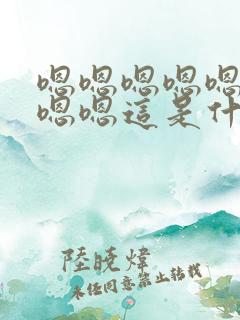 嗯嗯嗯嗯嗯
嗯嗯這是什
陸曉煒
未任同意禁止轉載